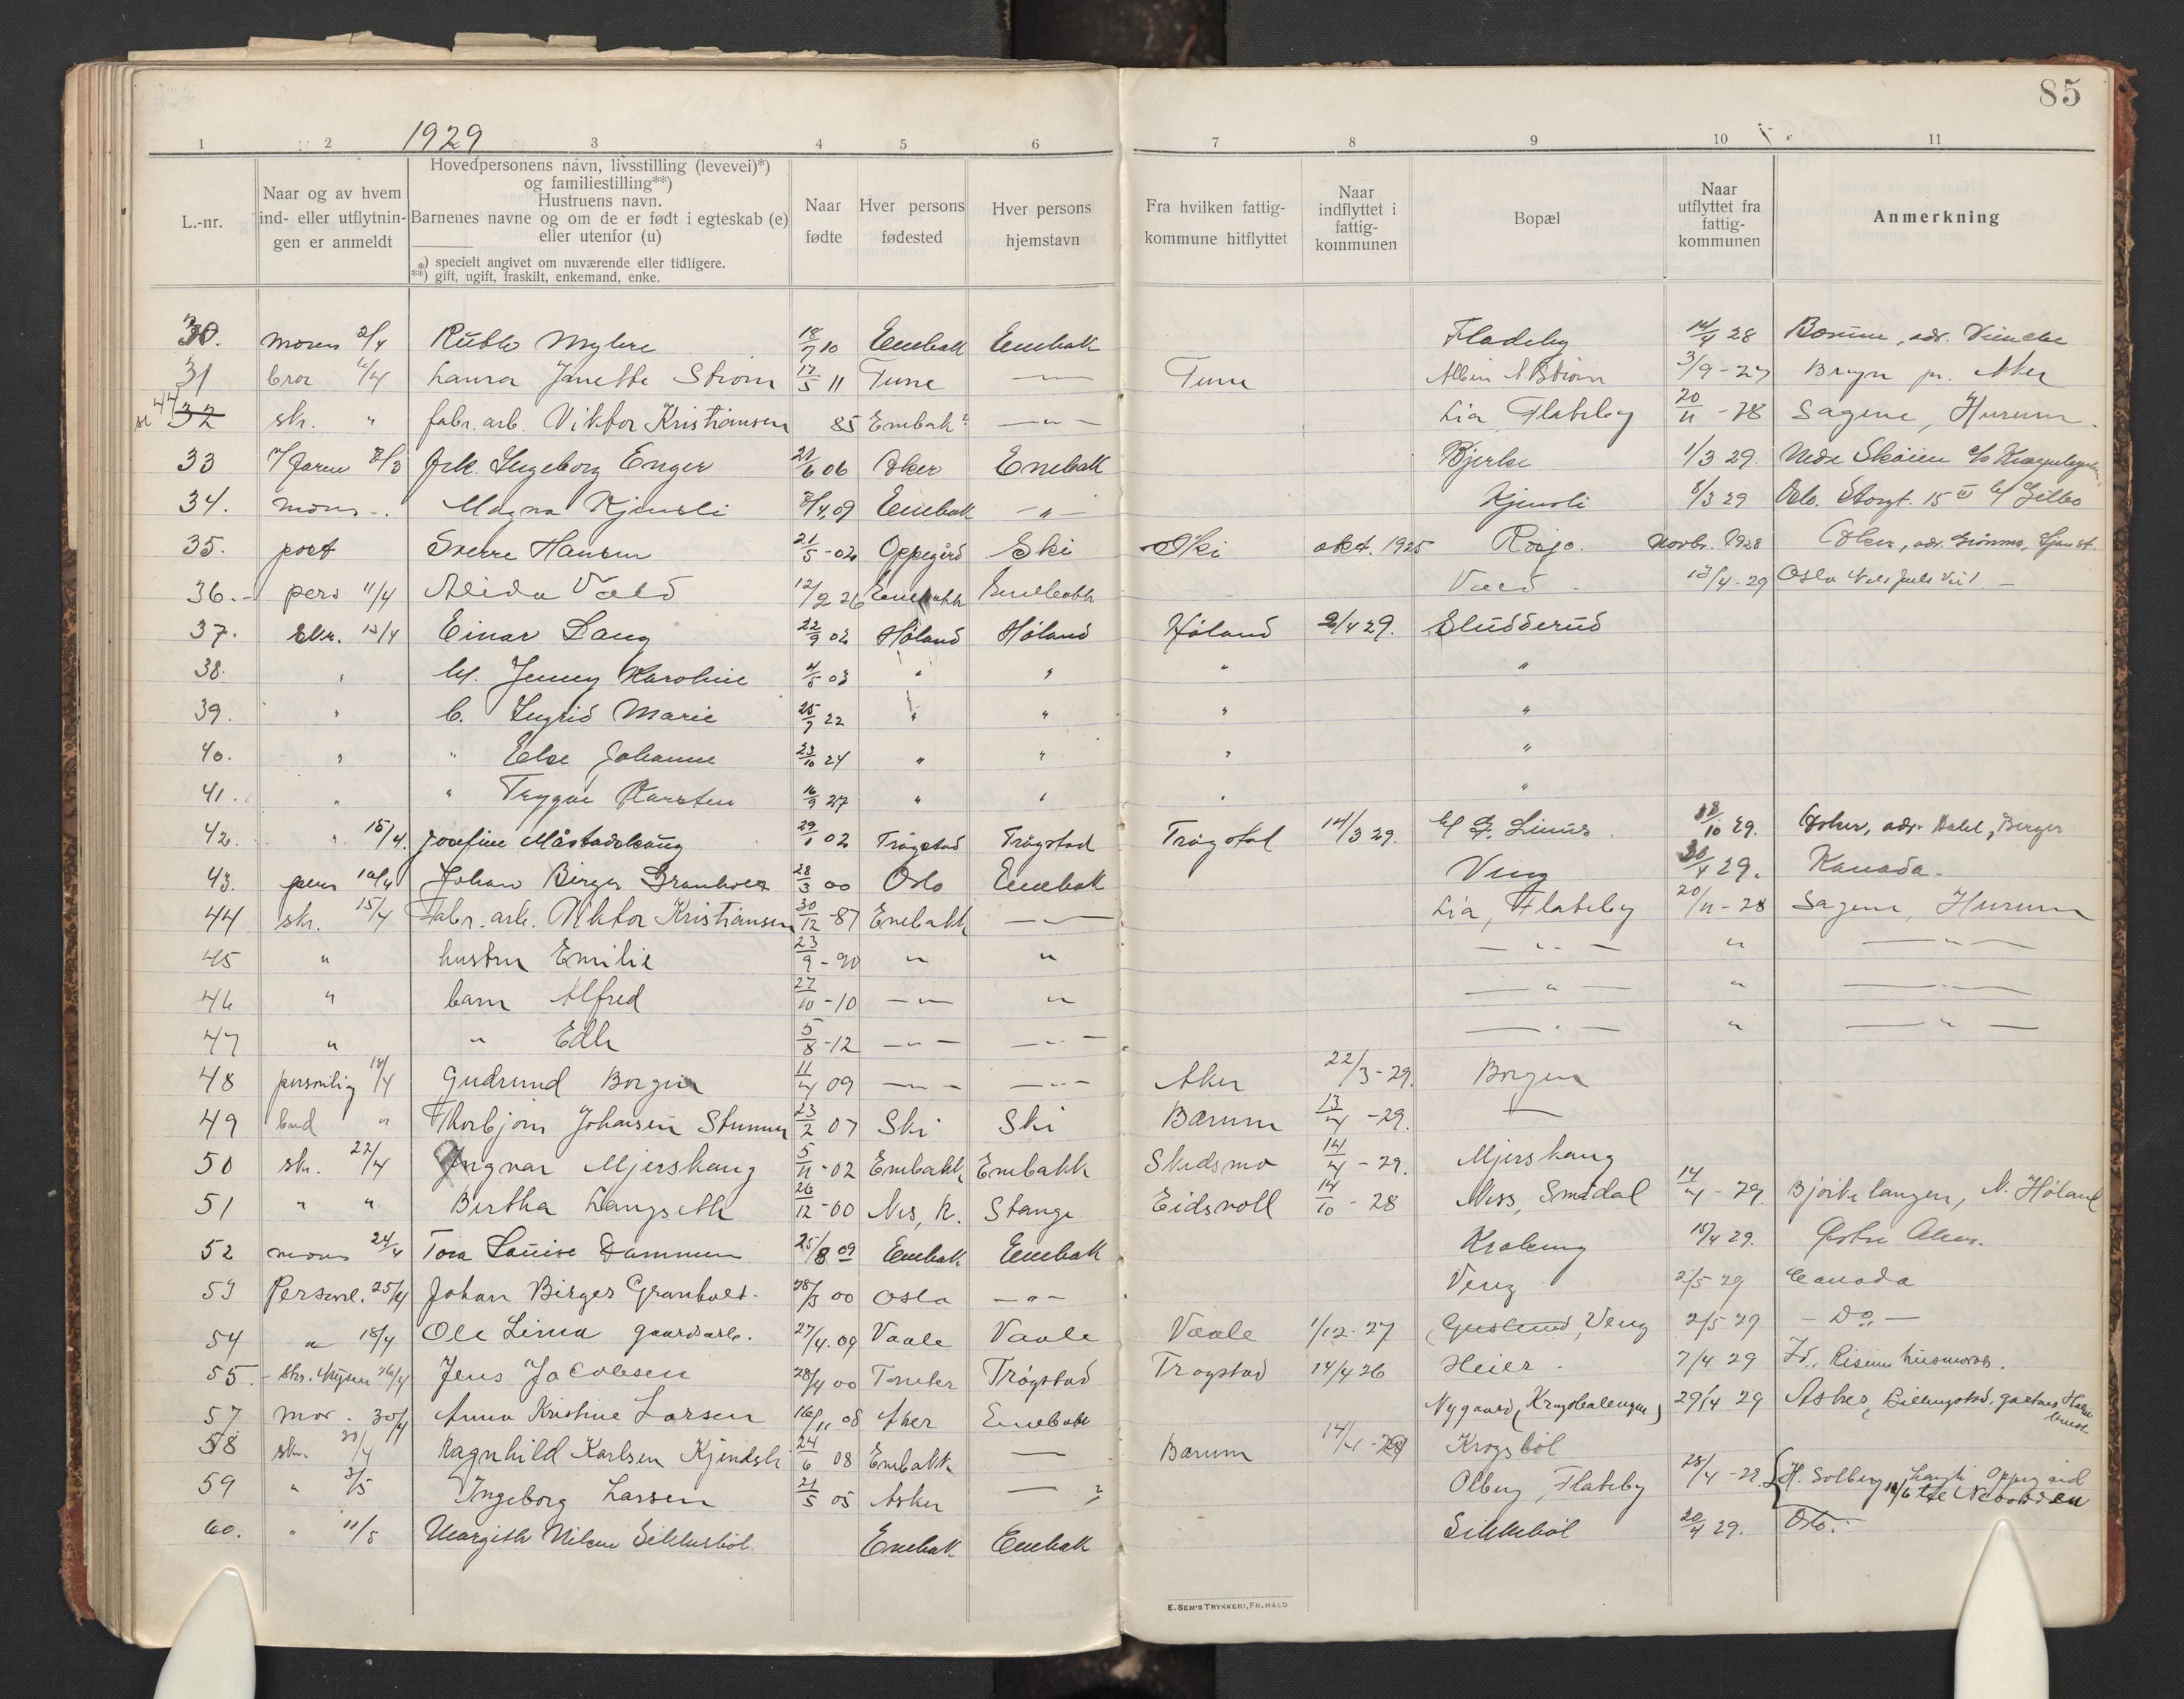 85
1929
1 2 3 4 5 6 7 8 9 10 11
L.-nr.
Naar og av hvem
ind- eller utflytnin-
gen er anmeldt
Hovedpersonens navn, livsstilling (levevei)*)
og familiestilling**)
Hustruens navn.
Barnenes navne og om de er født i egteskab (e)
eller utenfor (u)
*) specielt angivet om nuværende eller tidligere.
**) gift, ugift, fraskilt, enkemand, enke.
Naar
fødte
Hver persons
fødested
Hver persons
hjemstavn
Fra hvilken fattig-
kommune hitflyttet
Naar
indflyttet i
fattig-
kommunen
Bopæl
Naar
utflyttet fra
fattig-
kommunen
Anmerkning
30. 2/4 Ruth Myhre 18/7 10 Enebak Enebak Fladeby 28 Bærum, adr.
31 bror 6/4 Laura Janette Strøm 17/5 11 Tune — " — Tune Albin Strøm 3/9 - 27 Bryn pr. Aker
44 32 skr. " fabr. arb. Viktor Kristiansen 85 Enebak? — " — Lia, Flateby 20/11 - 28 Sagene, Hurum.
33 Frk. Ingeborg Enger 21/6 06 Aker Enebak Bjerke 1/3 29. Nedr Skøien c/o
34. Magna Kjensli 7/4 09 Enebak — " — Kjensli 8/3 29 Oslo. Storgt. 15
35. post Sverre Hansen 21/5 - 02 Oppegård Ski Ski okt. 1925 Novbr. 1928 Aker, adr.
36. pers 11/4 Alida Væld 12/2 26 Enebakk Enebakk Væld 12/4 - 29 Oslo
37. Skr. 12/4 Einar Haug 22/9 02 Høland Høland Høland 2/4 29. Sludderud
38. " M. Jenny Karoline 4/5 03 " " " "
39. " b. Ingrid Marie 25/7 22 " " " "
40. " " Else Johanne 23/10 24 " " " "
41. " " Trygve Karsten 16/9 27 " " " "
42. " 15/4. Josefine Måstadshaug 29/1 02 Trøgstad Trøgstad Trøgstad 14/3 29. 18/10 29. Asker, adr. Dahl, Berger
43. pers 16/4 Johan Birger Granholt 28/3 00 Oslo Enebak Veng 30/4 29. Kanada.
44 skr. 15/4 Fabr. arb. Viktor Kristiansen 30/12 - 87 Enebakk — " — Lia, Flateby 20/11 - 28 Sagene, Hurum
45 " hustru Emilie 23/9 - 90 " " — " — " — " —
46 " barn Alfred 27/10 - 10 — " — " — " — " — " —
47 " " Edle 5/8 - 12 — " — — " — — " — " — " —
48 personlig 19/4 Gudrund Borgen 11/4 09 — " — — " — Aker 22/3 - 29. Borgen
49 bud " Thorbjørn Johansen Stumner 23/2 07 Ski Ski Bærum 13/4 - 29.
50 skr. 22/4 Ingvar Mjerskaug 5/11 - 02 Enebakk Enebakk Skedsmo 14/4 - 29. Mjerskaug
51 " " Bertha Langseth 26/12 - 00 Nes, R. Stange Eidsvoll 14/10 - 28 Ness, Smådal 14/4 - 29. Bjørkelangen, N. Høland
52 24/4 Tora Louise Dammen 25/8 09 Enebak Enebak 15/4 29. Østre Aker.
53 Personl. 25/4 Johan Birger Granholt. 28/3 00 Oslo — " — Veng 2/5 29 Canada
54 " 18/4 Ole Lima gaardsarb. 27/4. 09 Vaale Vaale Vaale 1/12. 27 Veng 2/5 29 — Do. —
55. skr. Mysen 26/4 Jens Jacobsen 28/4 00 Tomter Trøgstad Trøgstad 14/4 26 Heier. 7/4 29
57 Mor. 30/4 Anna Kristine Larsen 16/11 08 Aker Enebak Nygaard (Krogsbølengen) 29/4 29 Asker, Billingstad,
58 skr. 30/4 Ragnhild Karlsen Kjendsli 24/6 08 Enebakk — Bærum 14/4 - 29 Krogsbøl
59 " 3/5 Ingeborg Larsen 21/5 05 Asker — ? Olberg, Flateby 28/4 - 29 H. Solberg, Oppegaard
60. " 11/5 Margith Nilsen Sikkebøl. Enebak Enebak Sikkebøl 20/4 29. Oslo.
E. SEM'S TRYKKERI, FR.HALD